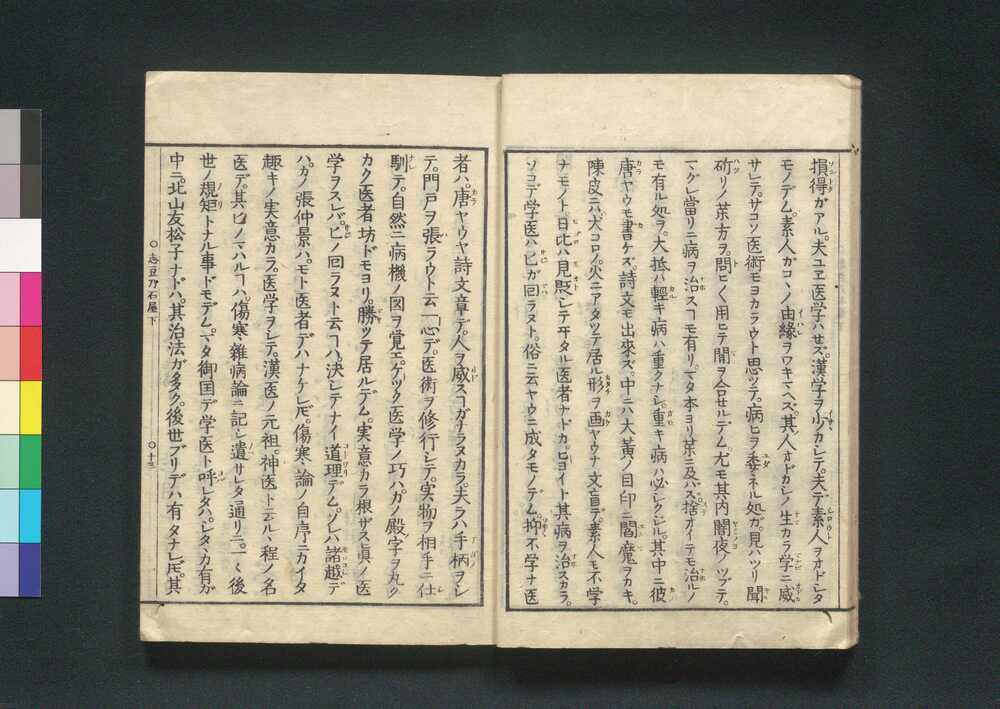 損得ガアル。夫ユヱ医学ハせズ。漢学ヲ少カシテ。夫デ素人ヲオドレタ
モノデム。素人ガコヽノ由縁ヲワキマヘズ。其人オドカレノ生カラ学ニ威
サレテ。サコソ医術モヨカラウト思ツテ。病ヒヲ委ネル処ガ。見ハツリ聞
斫リノ茱方ヲ。問ヒ〱用ヒテ闇ヲ合せルデム。尤モ其内闇夜ノツブテ。
マグレ當リニ病ヲ治スコモ有リ。マタ本ヨリ茱ニ及バズ捨オイテモ治ルノ
モ有ル処ヲ。大抵ハ輕キ病ハ重タナシ。重キ病ハ必シクジル。其中ニ彼
唐ヤウモ書ケズ。詩文モ出來ズ。中ニハ大黄ノ目印ニ閻魔ヲカキ。
陳皮ニハ。犬コロノ。火ニアタツテ居ル形ヲ画ヤウナ文盲デ。素人モ不学
ナモノト。日比ハ見貶シテヰタル医者ナドカ。ヒヨイト其病ヲ治スカラ。
ソコデ学医ハヒガ回ラヌト。俗ニ云ヤウニ成タモノデム。抑不学ナ医
者ハ。唐ヤウヤ詩文章デ。人ヲ威スコガナラヌカラ。夫ラハ手柄ヲシ
テ。門戸ヲ張ラウト云一心デ。医術ヲ修行シテ。実物ヲ相手ニ仕
馴テ。自然ニ病機ノ図ヲ覚エ。ゲツク医学ノ巧ハガノ殿字ヲ丸ク
カク医者坊ドモヨリ。勝ツテ居ルデム。実意カラ根ザス眞ノ医
学ヲスレバ。ヒノ回ラヌト云コハ。決シテナイ道理デム。ソレハ諸越デ
ハ。カノ張仲景ハ。モト医者デハナケレ𪜈。傷寒論ノ自序ニカイタ
趣キノ実意カラ。医学ヲシテ。漢医ノ元祖。神医トモ云ル、程ノ名
医デ。其ヒノマハルコハ。傷寒雜病論ニ記シ遺サレタ通リニ。一〱後
世ノ規矩トナル事ドモデム。マタ御国デ学医ト呼レタハ。レタヽカ有ガ
中ニ。北山友松子ナドハ。其治法ガ多ク。後世ブリデハ有タナレ𪜈。其
志豆乃石屋下
十三